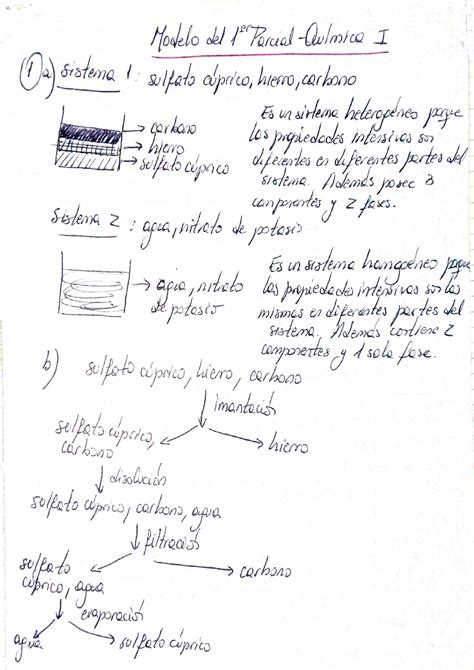 Modelo del 1er Parcial - Química I
1) a) Sistema 1: sulfato cúprico, hierro, carbono
→ carbono
→ hierro
→ sulfato cúprico
Es un sistema heterogéneo porque
las propiedades intensivas son
diferentes en diferentes partes del
sistema. Además posee 3
componentes y 2 fases.
Sistema 2: agua, nitrato de potasio
→ agua, nitrato
de potasio
Es un sistema homogéneo porque
las propiedades intensivas son las
mismas en diferentes partes del
sistema. Además contiene 2
componentes y 1 sola fase.
b) sulfato cúprico, hierro, carbono
imantación
sulfato cúprico,
carbono
hierro
disolución
sulfato cúprico, carbono, agua
filtración
sulfato
cúprico, agua
carbono
evaporación
agua
sulfato cúprico